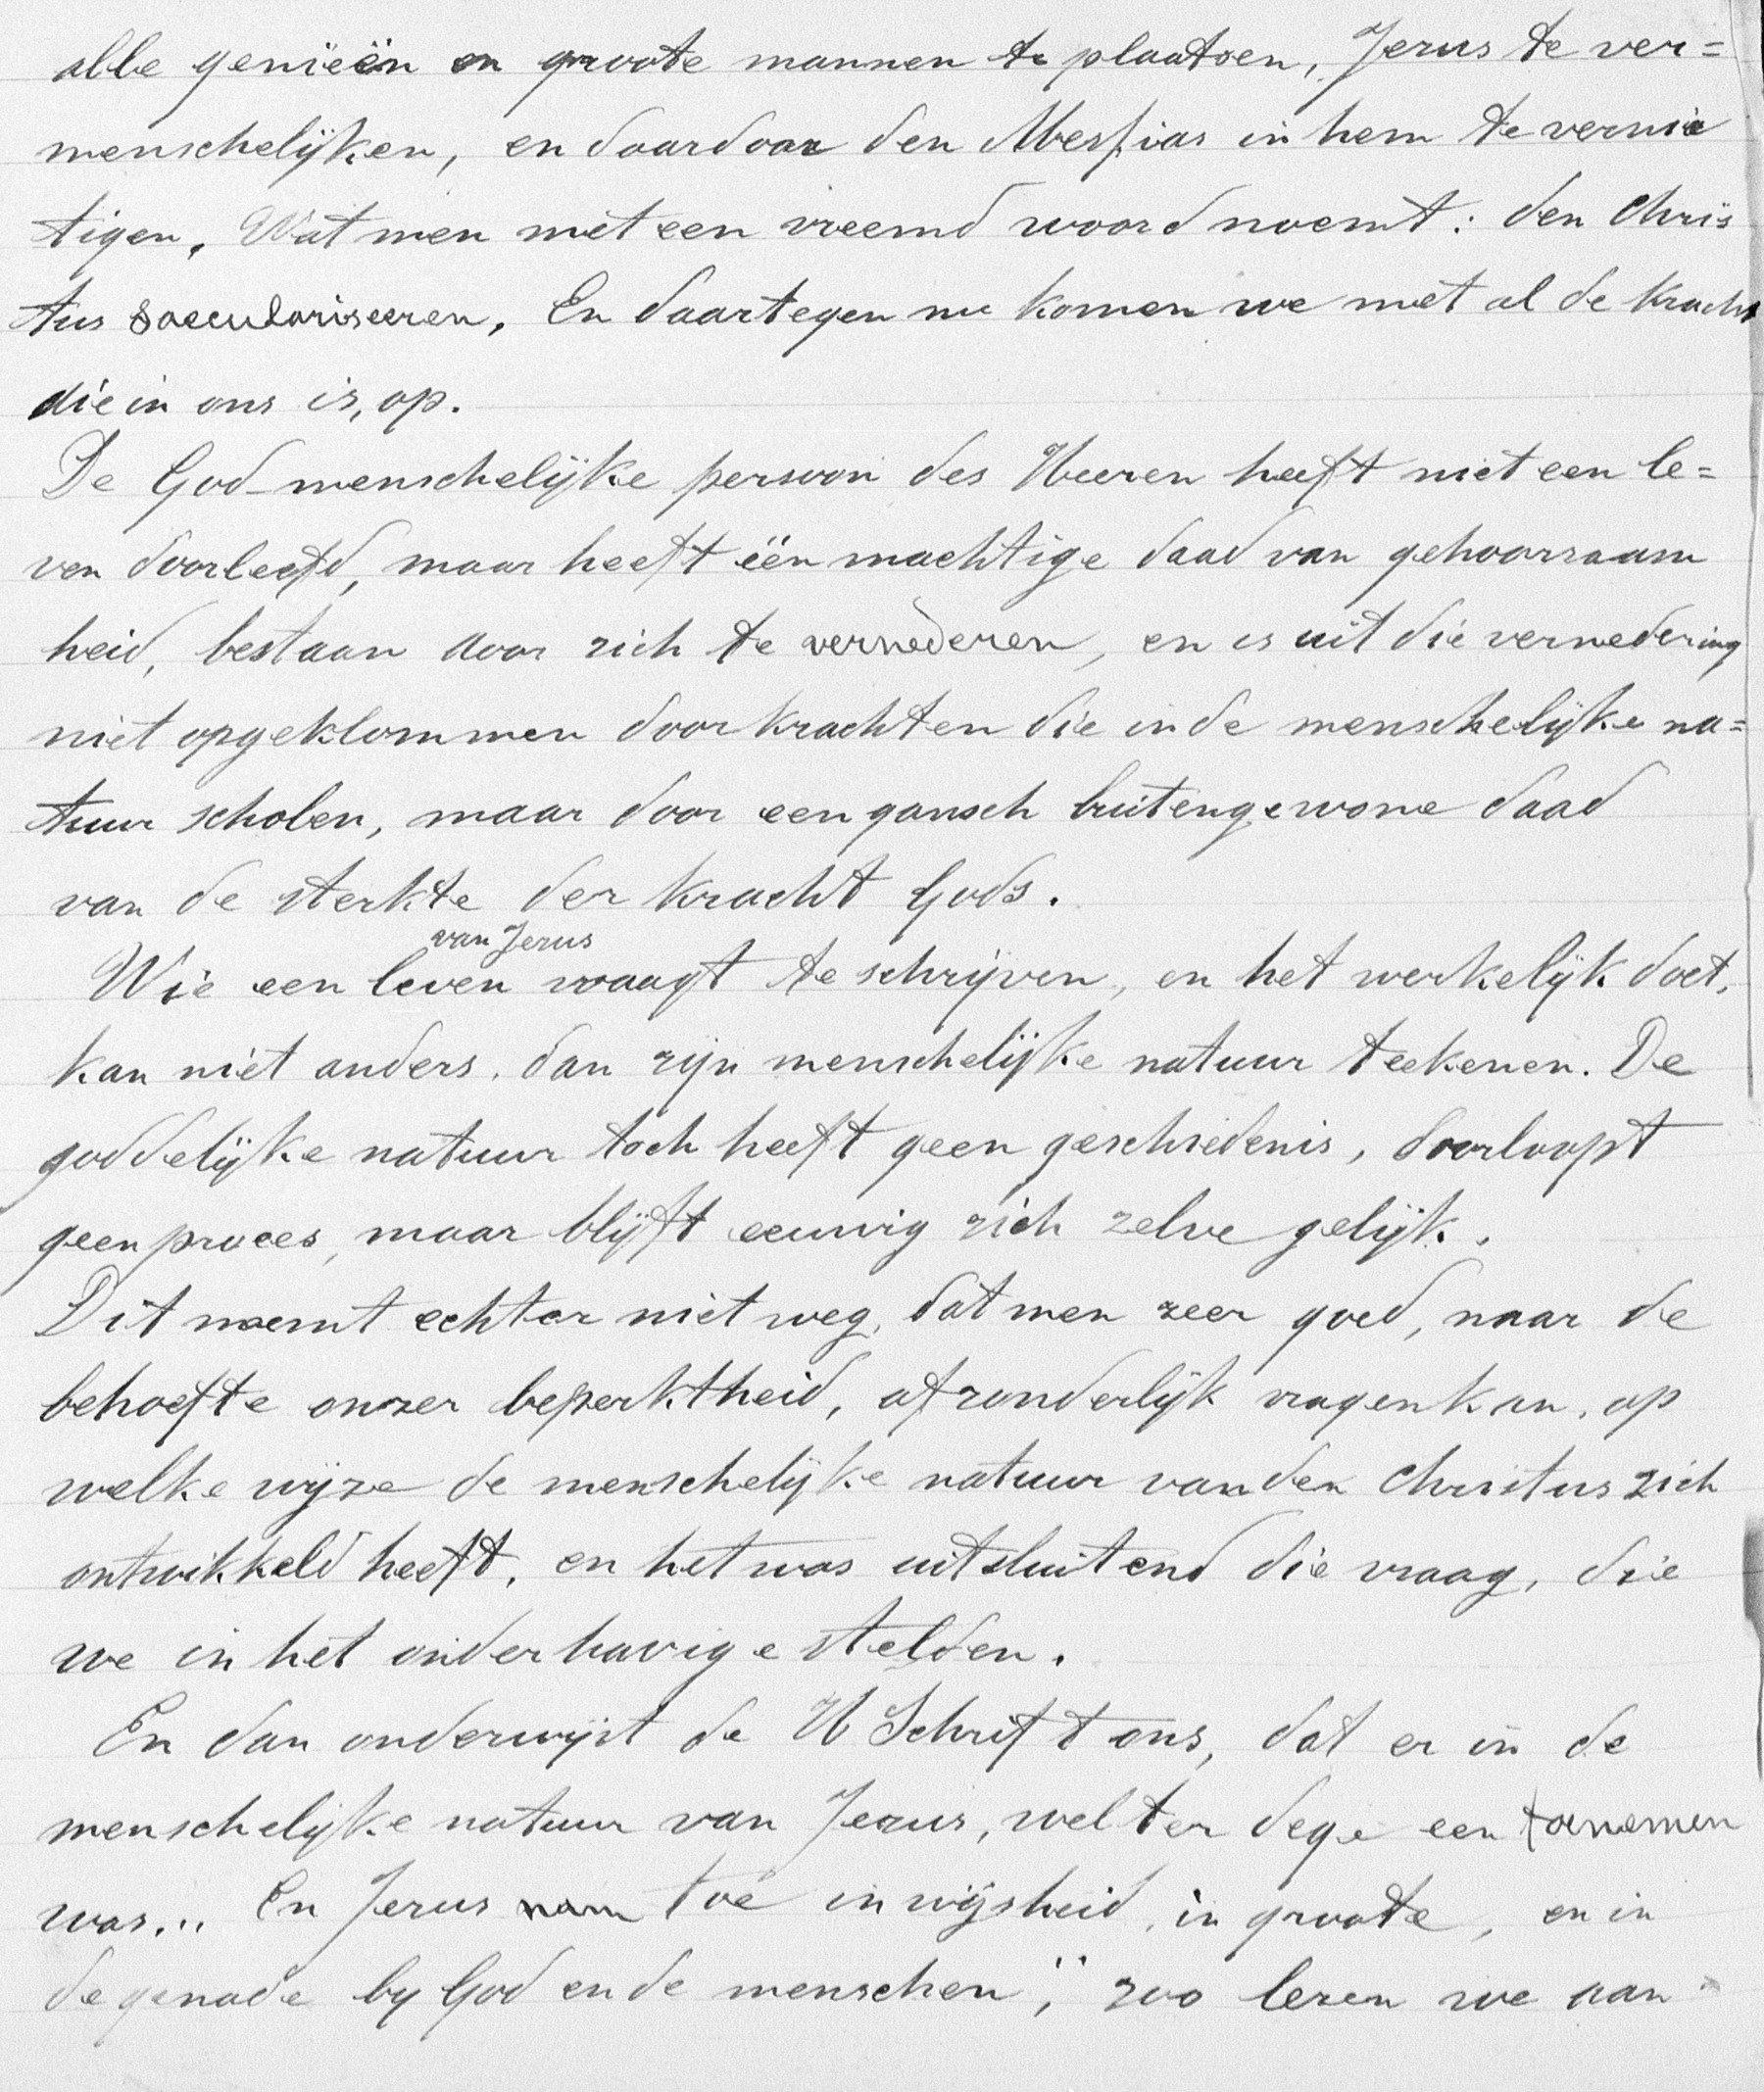 alle genieën en groote mannen te plaatsen, Jezus te ver=
menschelijken, en daardoor den Messias in hem te vernie
tigen. Wat men met een vreemd woord noemt: den Chris
tus saeculariseeren. En daartegen nu komen we met al de kracht
die in ons is, op.
De God-menschelijke persoon des Heeren heeft niet een le=
ven doorleefd, maar heeft één machtige daad van gehoorzaam
heid, bestaan door zich te vernederen, en is uit die vernedering
niet opgeklommen door krachten die in de menschelijke na=
tuur scholen, maar door een gansch buitengewone daad
van de sterkte der kracht Gods.
van Jezus
Wie een leven waagt te schrijven, en het werkelijk doet,
kan niet anders, dan zijn menschelijke natuur teekenen. De
goddelijke natuur toch heeft geen geschiedenis, doorloopt
geen proces, maar blijft eeuwig zich zelve gelijk.
Dit neemt echter niet weg, dat men zeer goed, naar de
behoefte onzer beperktheid, afzonderlijk vragen kan, op
welke wijze de menschelijke natuur van den Christus zich
ontwikkeld heeft, en het was uitsluitend die vraag, die
we in het onderhavige stelden.
En dan onderwijst de H Schrift ons, dat er in de
menschelijke natuur van Jezus, wel ter dege een toenemen
was... En Jezus nam toe in wijsheid, in groote, en in
de genade by God en de menschen", zoo lezen we aan